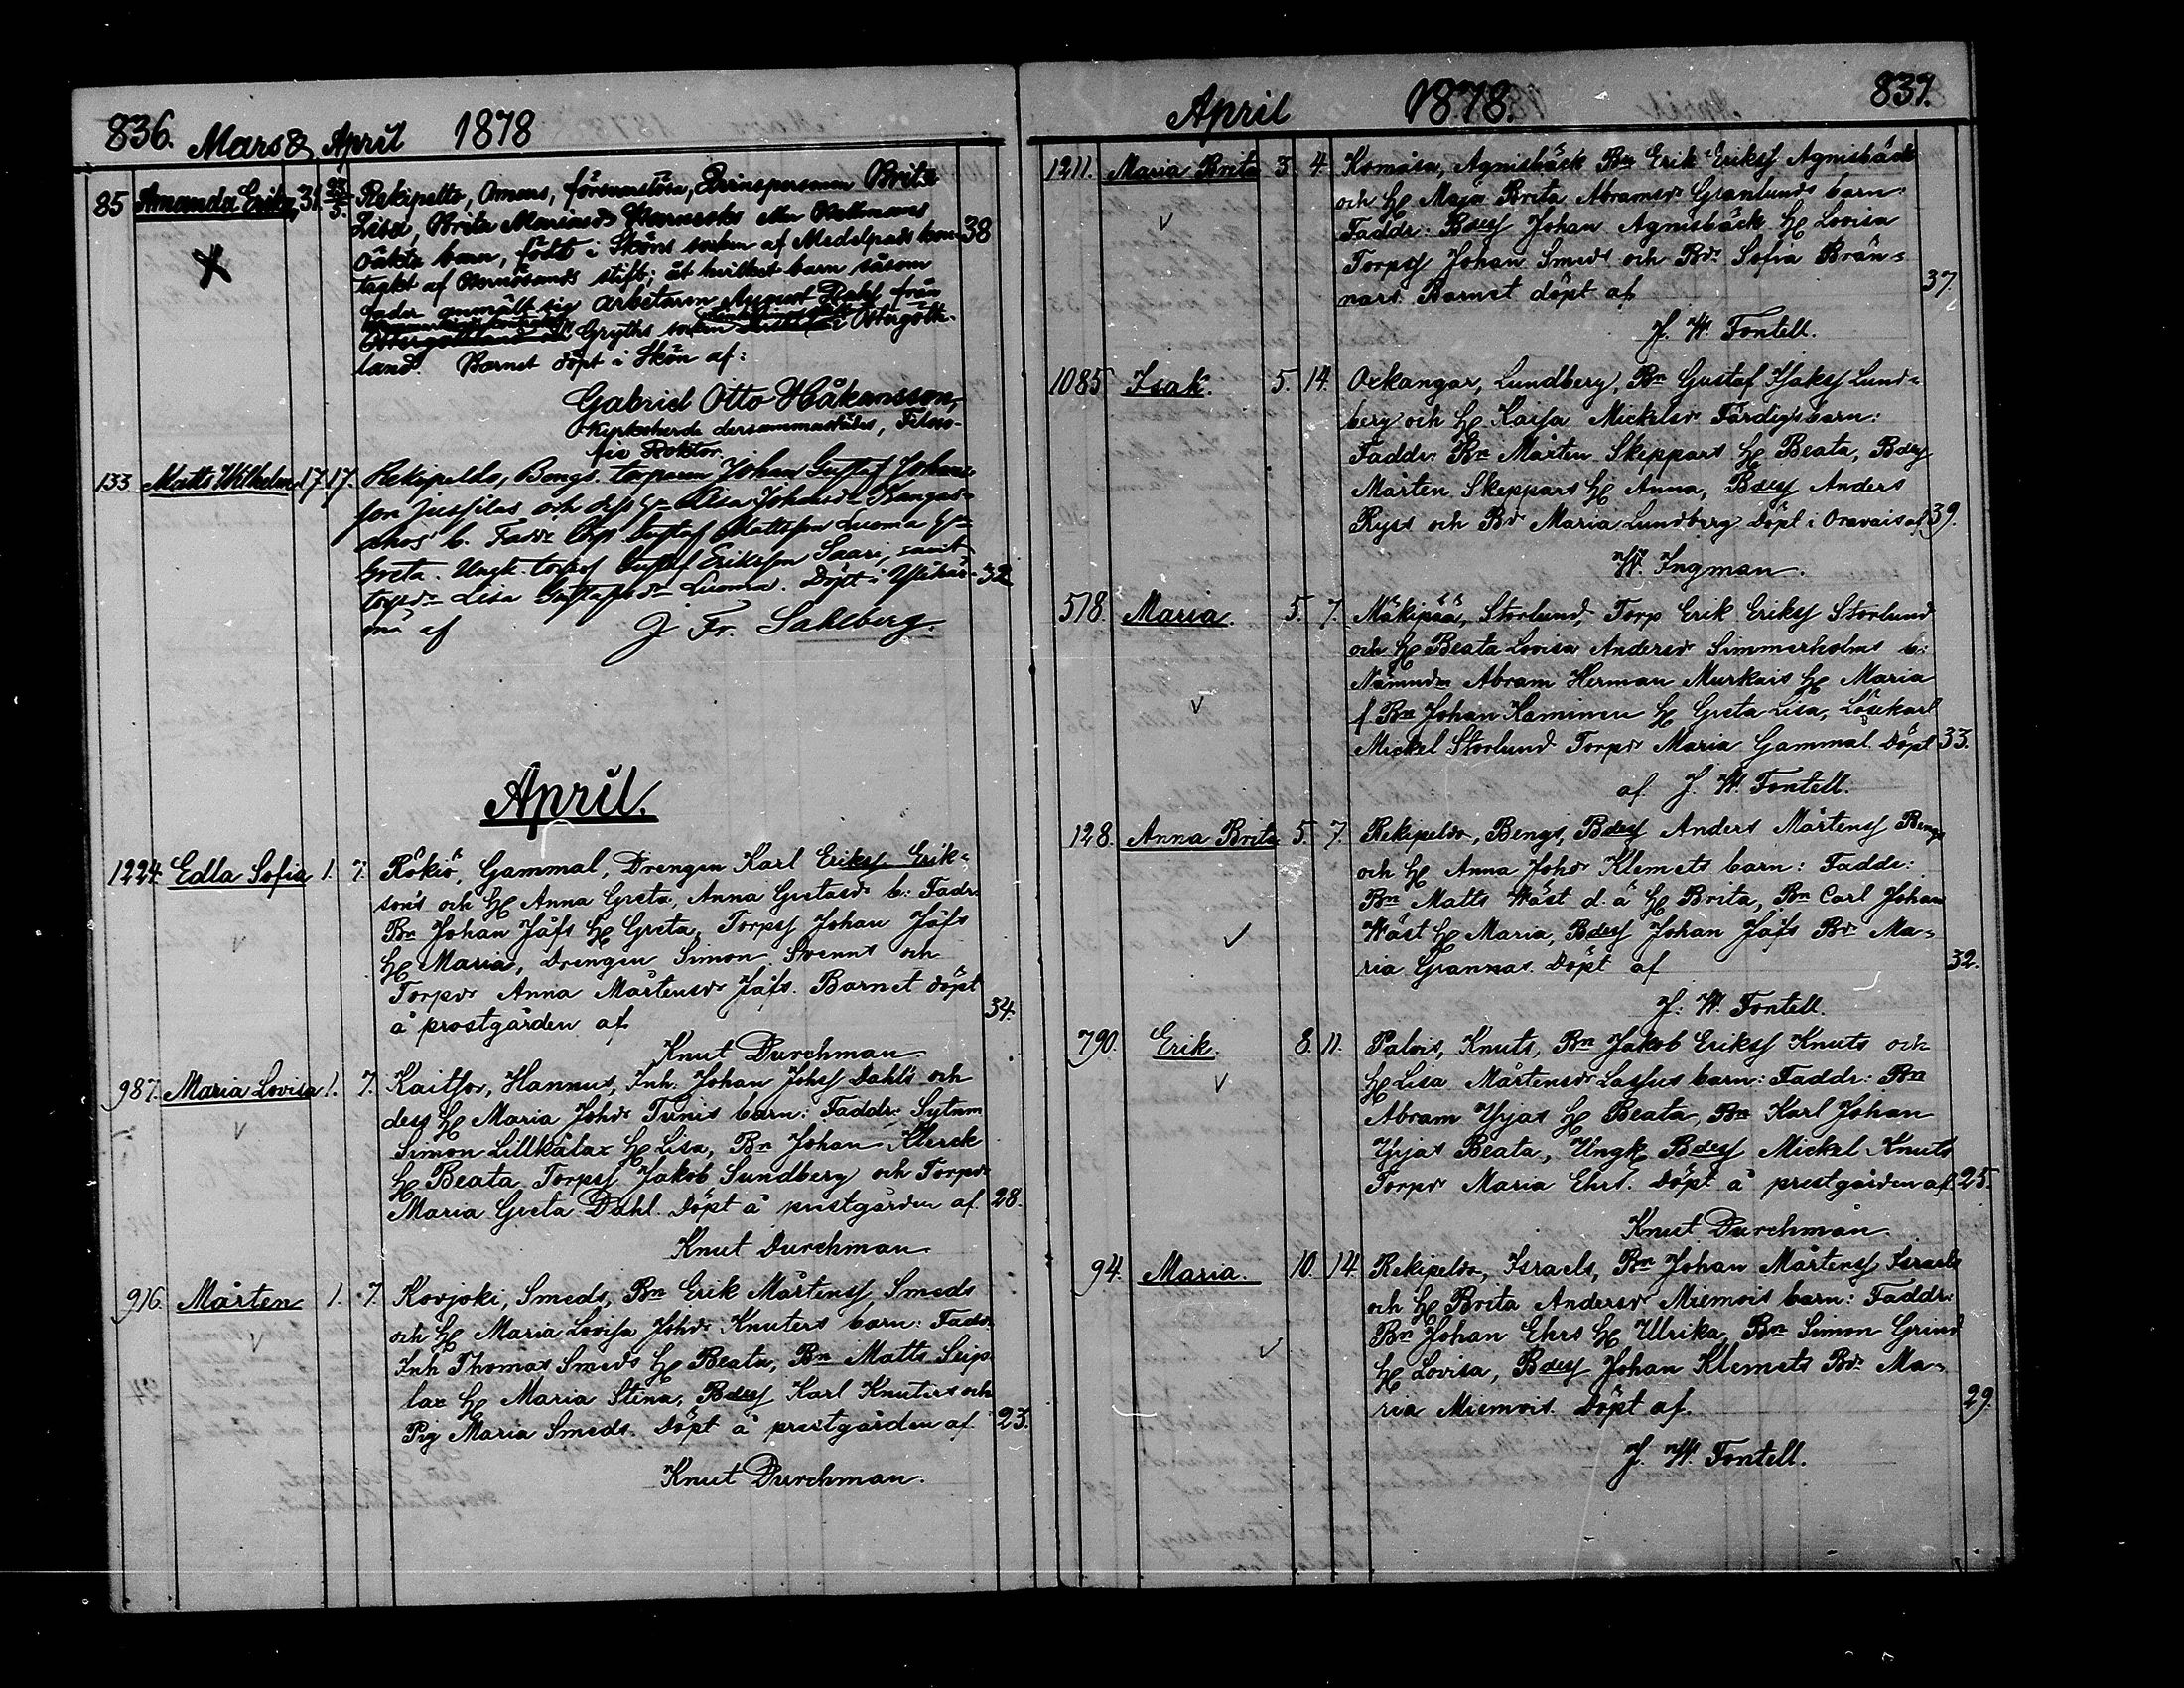 836. Mars & April 1878
85 Amanda Erika, 31. 23/5. Rekipelto, Omars, försvarslösa, qvinspersonen Brita
Lisa, Brita Mariasdr
oäkta barn, född i Sköns socken af Medelpads kon- 38
trakt af Hernösands stift; åt hvilket barn såsom
fader anmält sig arbetaren August Dahl från
Gryths socken i Östergöth-
land. Barnet döpt i Skön af:
Gabriel Otto Håkansson,
Kyrkoherde dersammastädes, Filoso-
fie Doktor.
133 Matts Wilhelm 17. 17. Rekipeldo, Bengs. torparen Johan Gustaf Johans-
son Jussilas och dess Hu Lisa Johansdr Kangas-
ahos b. Faddr Gustaf Mattsson Luoma Hu
Greta. Ungk. torps Gustaf Eriksson Saari, samt
torpdr Lisa Gustafsdr Luoma. Döpt i Ylihär- 32
mä af J. Fr. Sahlberg.
April.
1224. Edla Sofia 1. 7. Rökiö, Gammal, Drengen Karl Eriks Erik-
sons och H Anna Greta, Anna Gustasdr b: Fadr:
Bn Johan Jåfs H Greta, Torps Johan Jåfs
H Maria, Drengen Simon Svenns och
Torpdr Anna Mårtensdr Jåfs. Barnet döpt
å prostgården af 34.
Knut Durchman.
987. Maria Lovisa 1. 7. Kaitsor, Hannus, Inh. Johan Johs Dahls och
dess H Maria Johdr Tunis barn: Faddr: Sytnm
Simon Lillkålax H Lisa, Bn Johan Klerck
H Beata Torps Jakob Sundberg och Torpdr
Maria Greta Dahl. Döpt å prestgården af 28.
Knut Durchman.
916. Mårten 1. 7. Kovjoki, Smeds, Bn Erik Mårtens Smeds
och H Maria Lovisa Johdr Knuters barn: Faddr
Inh Thomas Smeds H Beata, Bn Matts Seip
lax H Maria Stina, Bdes Karl Knuters och
Pig Maria Smeds. Döpt å prestgården af 23.
Knut Durchman.
April 1878. 837.
1211. Maria Brita 3. 4. Komåsa, Agnisbäck Bn Erik Eriks Agnisbäck
och H Maja Brita Abramsdr Granlunds barn:
Faddr: Bdes Johan Agnisbäck H Lovisa
Torps Johan Smeds och Bdr Sofia Brän-
nars. Barnet döpt af 37.
J. W. Fontell.
1085 Isak. 5. 14. Oxkangar, Lundberg, Bn Gustaf Isaks Lund-
berg och H Kaisa Mickelsdr Färdigs barn:
Faddr: Bn Mårten Skeppars H Beata, Bdes
Mårten Skeppars H Anna, Bdes Anders
Ryss och Bdr Maria Lundberg Döpt i Oravais af 39.
W. Ingman.
518. Maria. 5. 7. Mäkipää, Storlund, Torp Erik Eriks Storlund
och H Beata Lovisa Andersdr Simmerholms b:
Nämndm Abram Herman Murkais H Maria
f. Bn Johan Kaminen H Greta Lisa, Lösekarl
Mickel Storlund Torpdr Maria Gammal. Döpt 33.
af J. W. Fontell.
128. Anna Brita 5. 7. Rekipeldo, Bengs, Bdes Anders Mårtens Bengs
och H Anna Johdr Klemets barn: Faddr:
Bn Matts Wäst d. ä H Brita, Bn Carl Johan
Wäst H Maria, Bdes Johan Jåfs Bdr Ma-
ria Grannas. Döpt af 32.
J. W. Fontell.
790. Erik. 8. 11. Palvis, Knuts, Bn Jakob Eriks Knuts och
H Lisa Mårtensdr Lassus barn: Faddr: Bn
Abram Yrjas H Beata, Bn Karl Johan
Yrjas Beata, Ungk Bdes Mickel Knuts
Torpdr Maria Ehrs. Döpt å prestgården af. 25.
Knut Durchman.
94. Maria. 10. 14. Rekipeldo, Israels, Bn Johan Mårtens Israels
och H Brita Andersdr Miemois barn: Faddr:
Bn Johan Ehrs H Ulrika, Bn Simon Grind
H Lovisa, Bdes Johan Klemets Bdr Ma-
ria Miemois. Döpt af. 29.
J. W. Fontell.